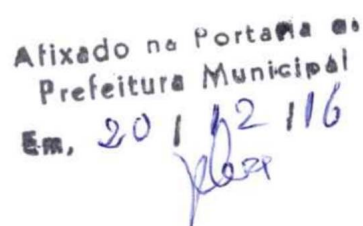 Afixado na Portaria da
Prefeitura Municipal
Em, 20 / 12 / 16